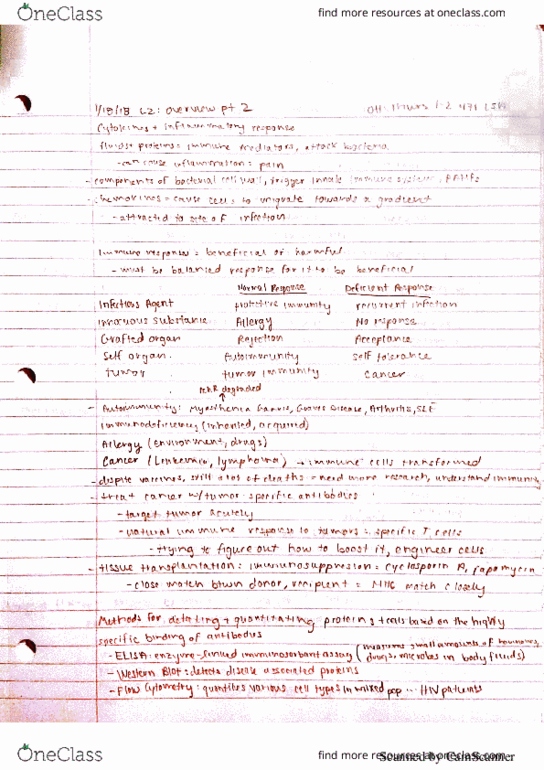 OneClass
find more resources at oneclass.com
1/18/18 L2: overview pt 2
Cytokines + inflammatory response
proteins: immune mediators, attack bacteria
-can cause inflammation = pain
-components of bacterial cell wall, trigger innate immune system, PAMPs
-chemokines = cause cells to migrate towards a gradient
-attracted to site of infection
Immune responses = beneficial or harmful
-must be balanced response for it to be beneficial
Normal Response Deficient Response
Infectious Agent protective immunity recurrent infection
innocuous substance Allergy No response
Grafted organ Rejection Acceptance
Self organ Autoimmunity self tolerance
tumor tumor immunity cancer
degraded
- Autoimmunity: Myasthenia Gravis, Graves Disease, Arthritis, SLE
immunodeficiency (inherited, acquired)
Allergy (environment, drugs)
Cancer (Leukemia, lymphoma) → immune cells transformed
-despite vaccines, still alot of deaths = need more research, understand immunity
-treat cancer w/tumor specific antibodies
-target tumor acutely
-natural immune response to tumors = specific T cells
-trying to figure out how to boost it, engineer cells
-tissue transplantation: immunosuppression: cyclosporin A, rapamycin
-close match btwn donor, recipient = MHC match closely
Methods for detecting + quantitating proteins + cells based on the highly
specific binding of antibodies
-ELISA: enzyme-linked immunosorbant assay (measures small amounts of hormones,
drugs, microbes in body fluids)
-Western Blot: detects disease associated proteins
-Flow Cytometry: quantifies various cell types in mixed pop ... HIV patients
OneClass
find more resources at oneclass.com
Scanned by CamScanner